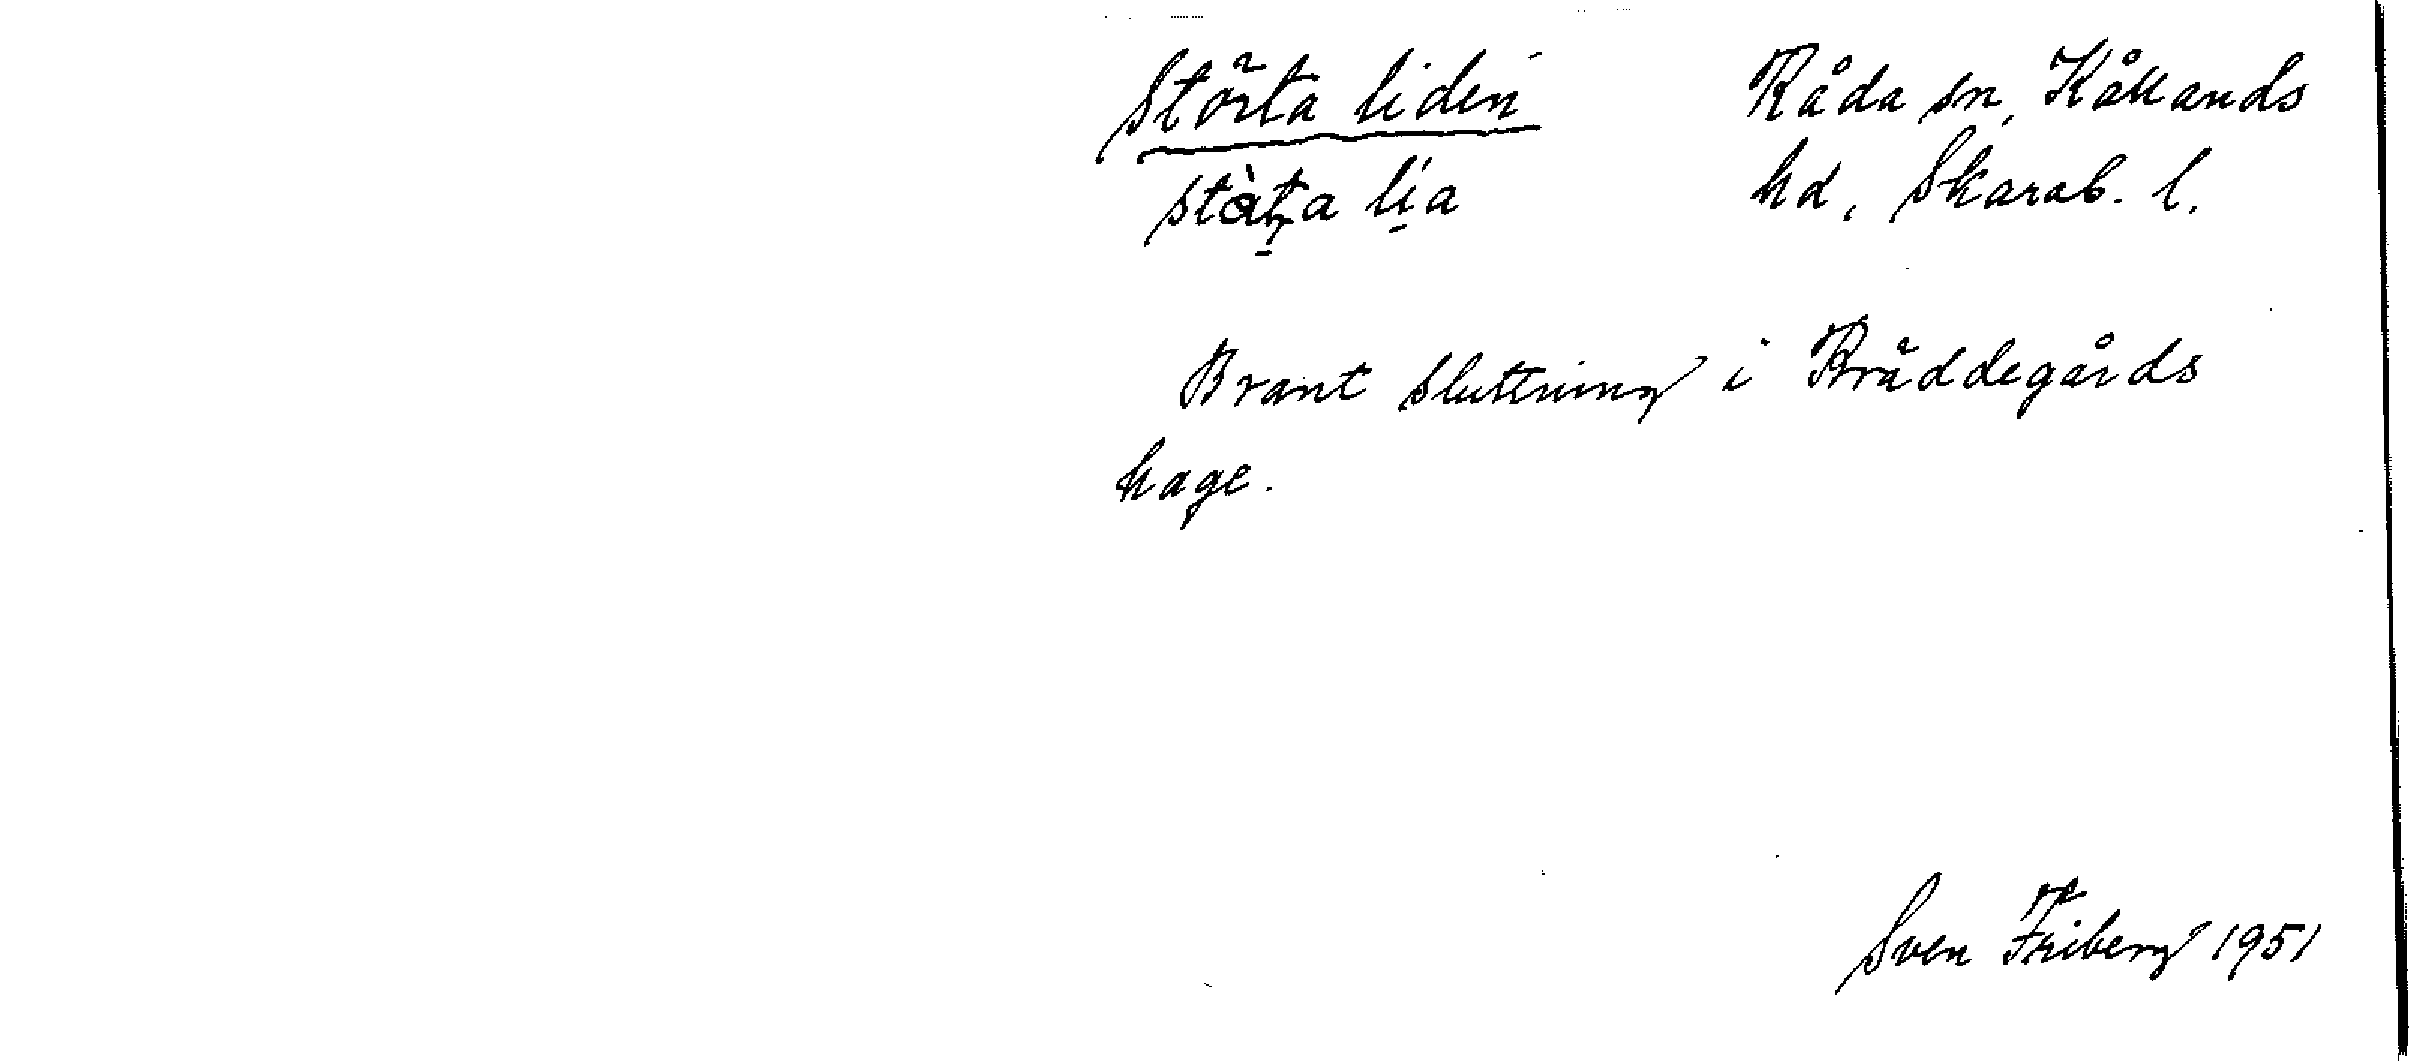 Störta liden
Råda sn, Kållands
hd, Skarab. l.
Brant sluttning i Bräddegårds
hage.
Sven Friberg 1951